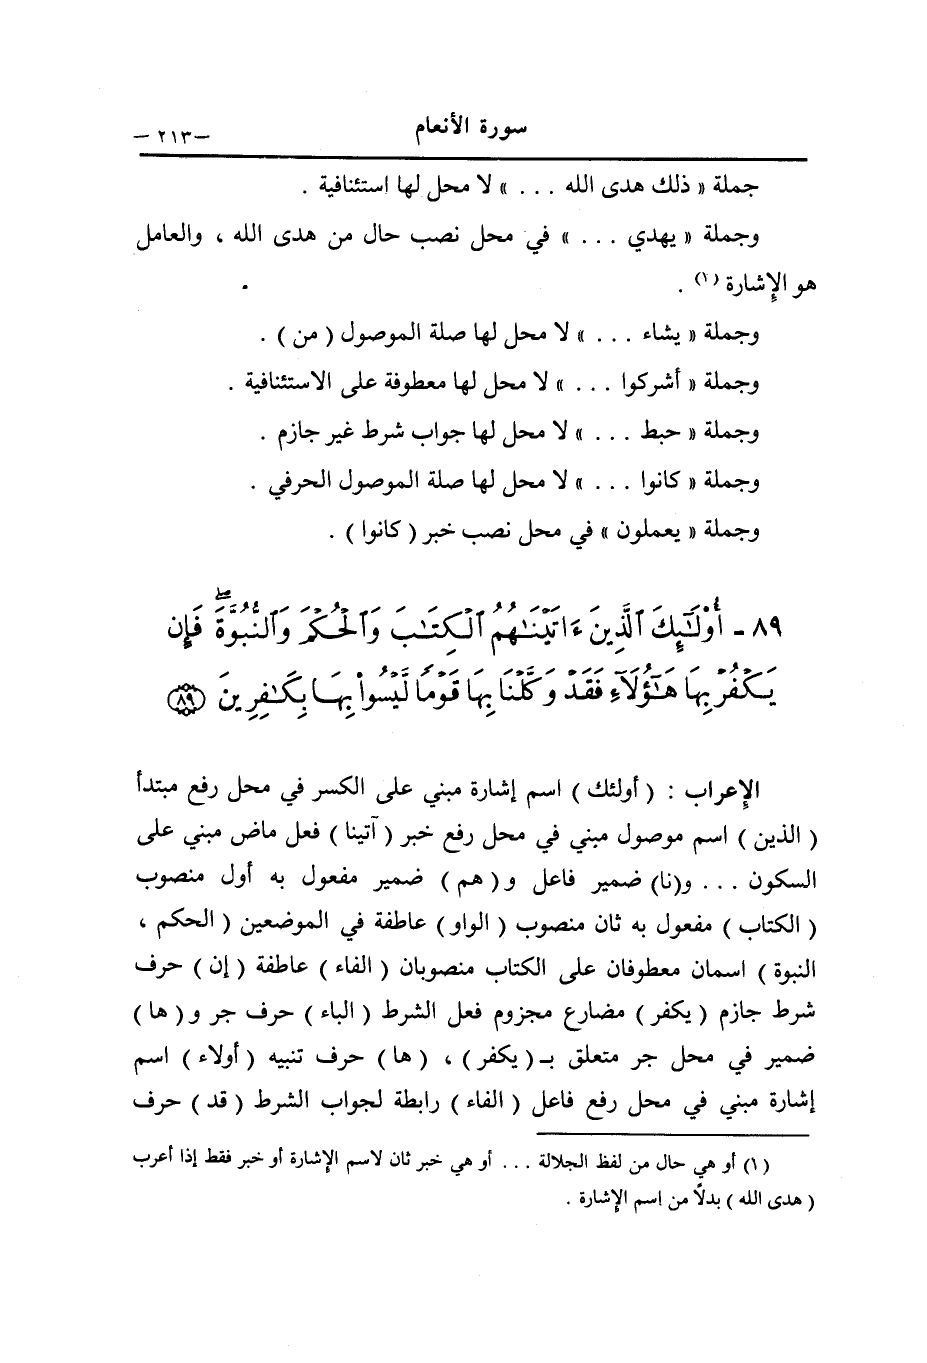 سورة الأنعام
— ٢١٣ —
جملة « ذلك هدى الله . . . » لا محل لها استئنافية .
وجملة « يهدي . . . » في محل نصب حال من هدى الله ، والعامل
هو الإشارة (١) .
وجملة « يشاء . . . » لا محل لها صلة الموصول ( من ) .
وجملة « أشركوا . . . » لا محل لها معطوفة على الاستئنافية .
وجملة « حبط . . . » لا محل لها جواب شرط غير جازم .
وجملة « كانوا . . . » لا محل لها صلة الموصول الحرفي .
وجملة « يعملون » في محل نصب خبر ( كانوا ) .
٨٩ - أُوْلَٰٓئِكَ ٱلَّذِينَ ءَاتَيْنَٰهُمُ ٱلْكِتَٰبَ وَٱلْحُكْمَ وَٱلنُّبُوَّةَۖ فَإِن
يَكْفُرْ بِهَا هَٰٓؤُلَآءِ فَقَدْ وَكَّلْنَا بِهَا قَوْمًا لَّيْسُوا۟ بِهَا بِكَٰفِرِينَ ﴿٨٩﴾
الإعراب : ( أولئك ) اسم إشارة مبني على الكسر في محل رفع مبتدأ
( الذين ) اسم موصول مبني في محل رفع خبر ( آتينا ) فعل ماض مبني على
السكون . . . و(نا) ضمير فاعل و( هم ) ضمير مفعول به أول منصوب
( الكتاب ) مفعول به ثان منصوب ( الواو ) عاطفة في الموضعين ( الحكم ،
النبوة ) اسمان معطوفان على الكتاب منصوبان ( الفاء ) عاطفة ( إن ) حرف
شرط جازم ( يكفر ) مضارع مجزوم فعل الشرط ( الباء ) حرف جر و( ها )
ضمير في محل جر متعلق بـ ( يكفر ) ، ( ها ) حرف تنبيه ( أولاء ) اسم
إشارة مبني في محل رفع فاعل ( الفاء ) رابطة لجواب الشرط ( قد ) حرف
(١) أو هي حال من لفظ الجلالة . . . أو هي خبر ثان لاسم الإشارة أو خبر فقط إذا أعرب
( هدى الله ) بدلاً من اسم الإشارة .